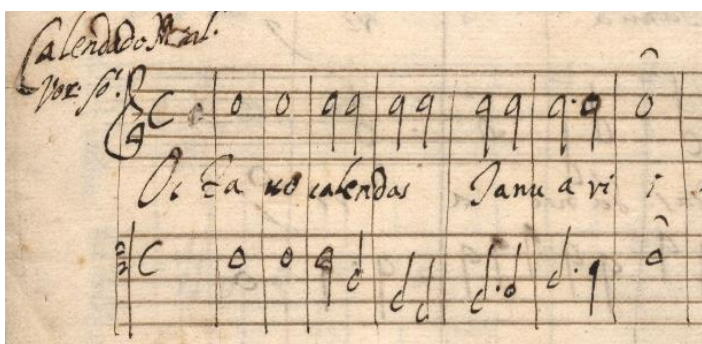 Calendado
Vox. so.
Oc ta uo calendas Janu a ri i